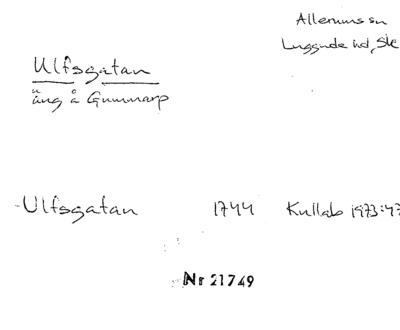 Allerums sn
Luggude hd, Sk
Ulfsgatan
äng å Gunnarp
Ulfsgatan 1744 Kullab 1973:47
Nr 21749